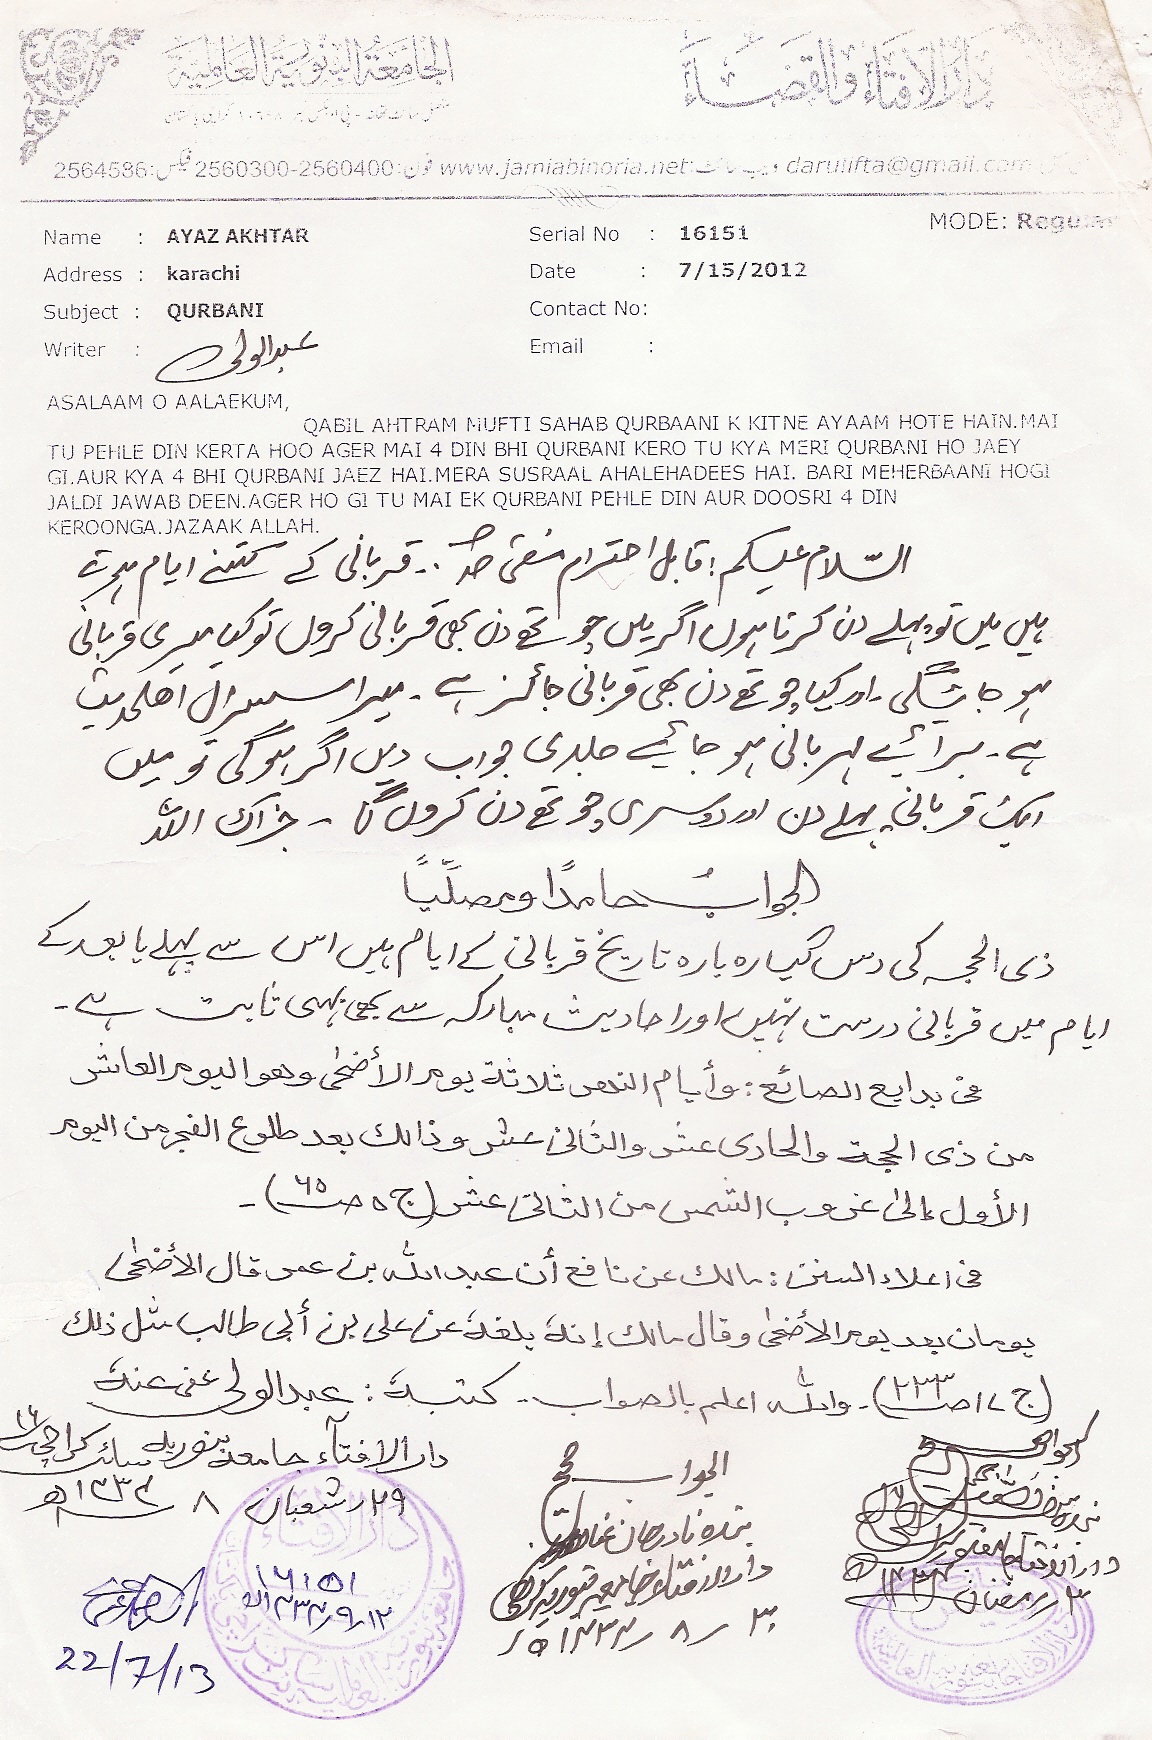 دارالافتاء والقضاء
الجامعة البنورية العالمية
darulifta@gmail.com ویب سائٹ:www.jamiabinoria.net فون:2560300-2560400 فیکس:2564586
MODE: Regular
Name : AYAZ AKHTAR Serial No : 16151
Address : karachi Date : 7/15/2012
Subject : QURBANI Contact No:
Writer : عبدالولی Email :
ASALAAM O AALAEKUM,
QABIL AHTRAM MUFTI SAHAB QURBAANI K KITNE AYAAM HOTE HAIN.MAI
TU PEHLE DIN KERTA HOO AGER MAI 4 DIN BHI QURBANI KERO TU KYA MERI QURBANI HO JAEY
GI.AUR KYA 4 BHI QURBANI JAEZ HAI.MERA SUSRAAL AHALEHADEES HAI. BARI MEHERBAANI HOGI
JALDI JAWAB DEEN.AGER HO GI TU MAI EK QURBANI PEHLE DIN AUR DOOSRI 4 DIN
KEROONGA.JAZAAK ALLAH.
السّلام علیکم! قابل احترام مفتی صاحب .. قربانی کے کتنے ایام ہوتے
ہیں میں تو پہلے دن کرتا ہوں اگر میں چوتھے دن بھی قربانی کروں تو کیا میری قربانی
ہو جائیگی۔ اور کیا چوتھے دن بھی قربانی جائز ہے۔ میرا سسرال اھلحدیث
ہے۔ برائے مہربانی ہو جائیے جلدی جواب دیں اگر ہوگی تو میں
ایک قربانی پہلے دن اور دوسری چوتھے دن کروں گا ۔ جزاک اللہ
الجواب حامدًا ومصلّیًا
ذی الحجہ کی دس گیارہ بارہ تاریخ قربانی کے ایام ہیں اس سے پہلے یا بعد کے
ایام میں قربانی درست نہیں اور احادیث مبارکہ سے بھی یہی ثابت ہے۔
فی بدایع الصائع: وأیام النحر ثلاثة یوم الأضحٰی وھو الیوم العاشر
من ذی الحجة والحادی عشر والثانی عشر وذالک بعد طلوع الفجر من الیوم
الأول إلیٰ غروب الشمس من الثانی عشر (ج ۵ ص ۶۵)۔
فی اعلاء السنن: مالک عن نافع أن عبد اللہ بن عمر قال الأضحٰی
یومان بعد یوم الأضحٰی وقال مالک إنهٗ بلغهٗ عن علی بن أبی طالب مثل ذلک
(ج ۱۷ ص ۲۳۳)۔ واللہ اعلم بالصواب۔ کتبهٗ: عبدالولی عفی عنهٗ
دار الافتآء جامعہ بنوریہ سائٹ کراچی ۱۶
۲۹ شعبان ۸ ۱۴۳۴ھ
الجواب صحیح
بندہ نادر جان
دارالافتاء جامعہ بنوریہ کراچی
۳۰ / ۸ / ۱۴۳۴ھ
الجواب صحیح
۳ رمضان ۱۴۳۴ھ
دار الافتاء
۱۶۱۵۱
۱۲-۹-۱۴۳۴ھ
22/7/13